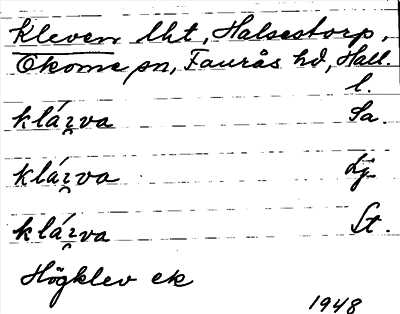 Kleven lht, Halsestorp,
Okome sn, Faurås hd, Hall.
l.
klázva Sa.
klázva Lj.
klázva St.
Högklev ek
1948